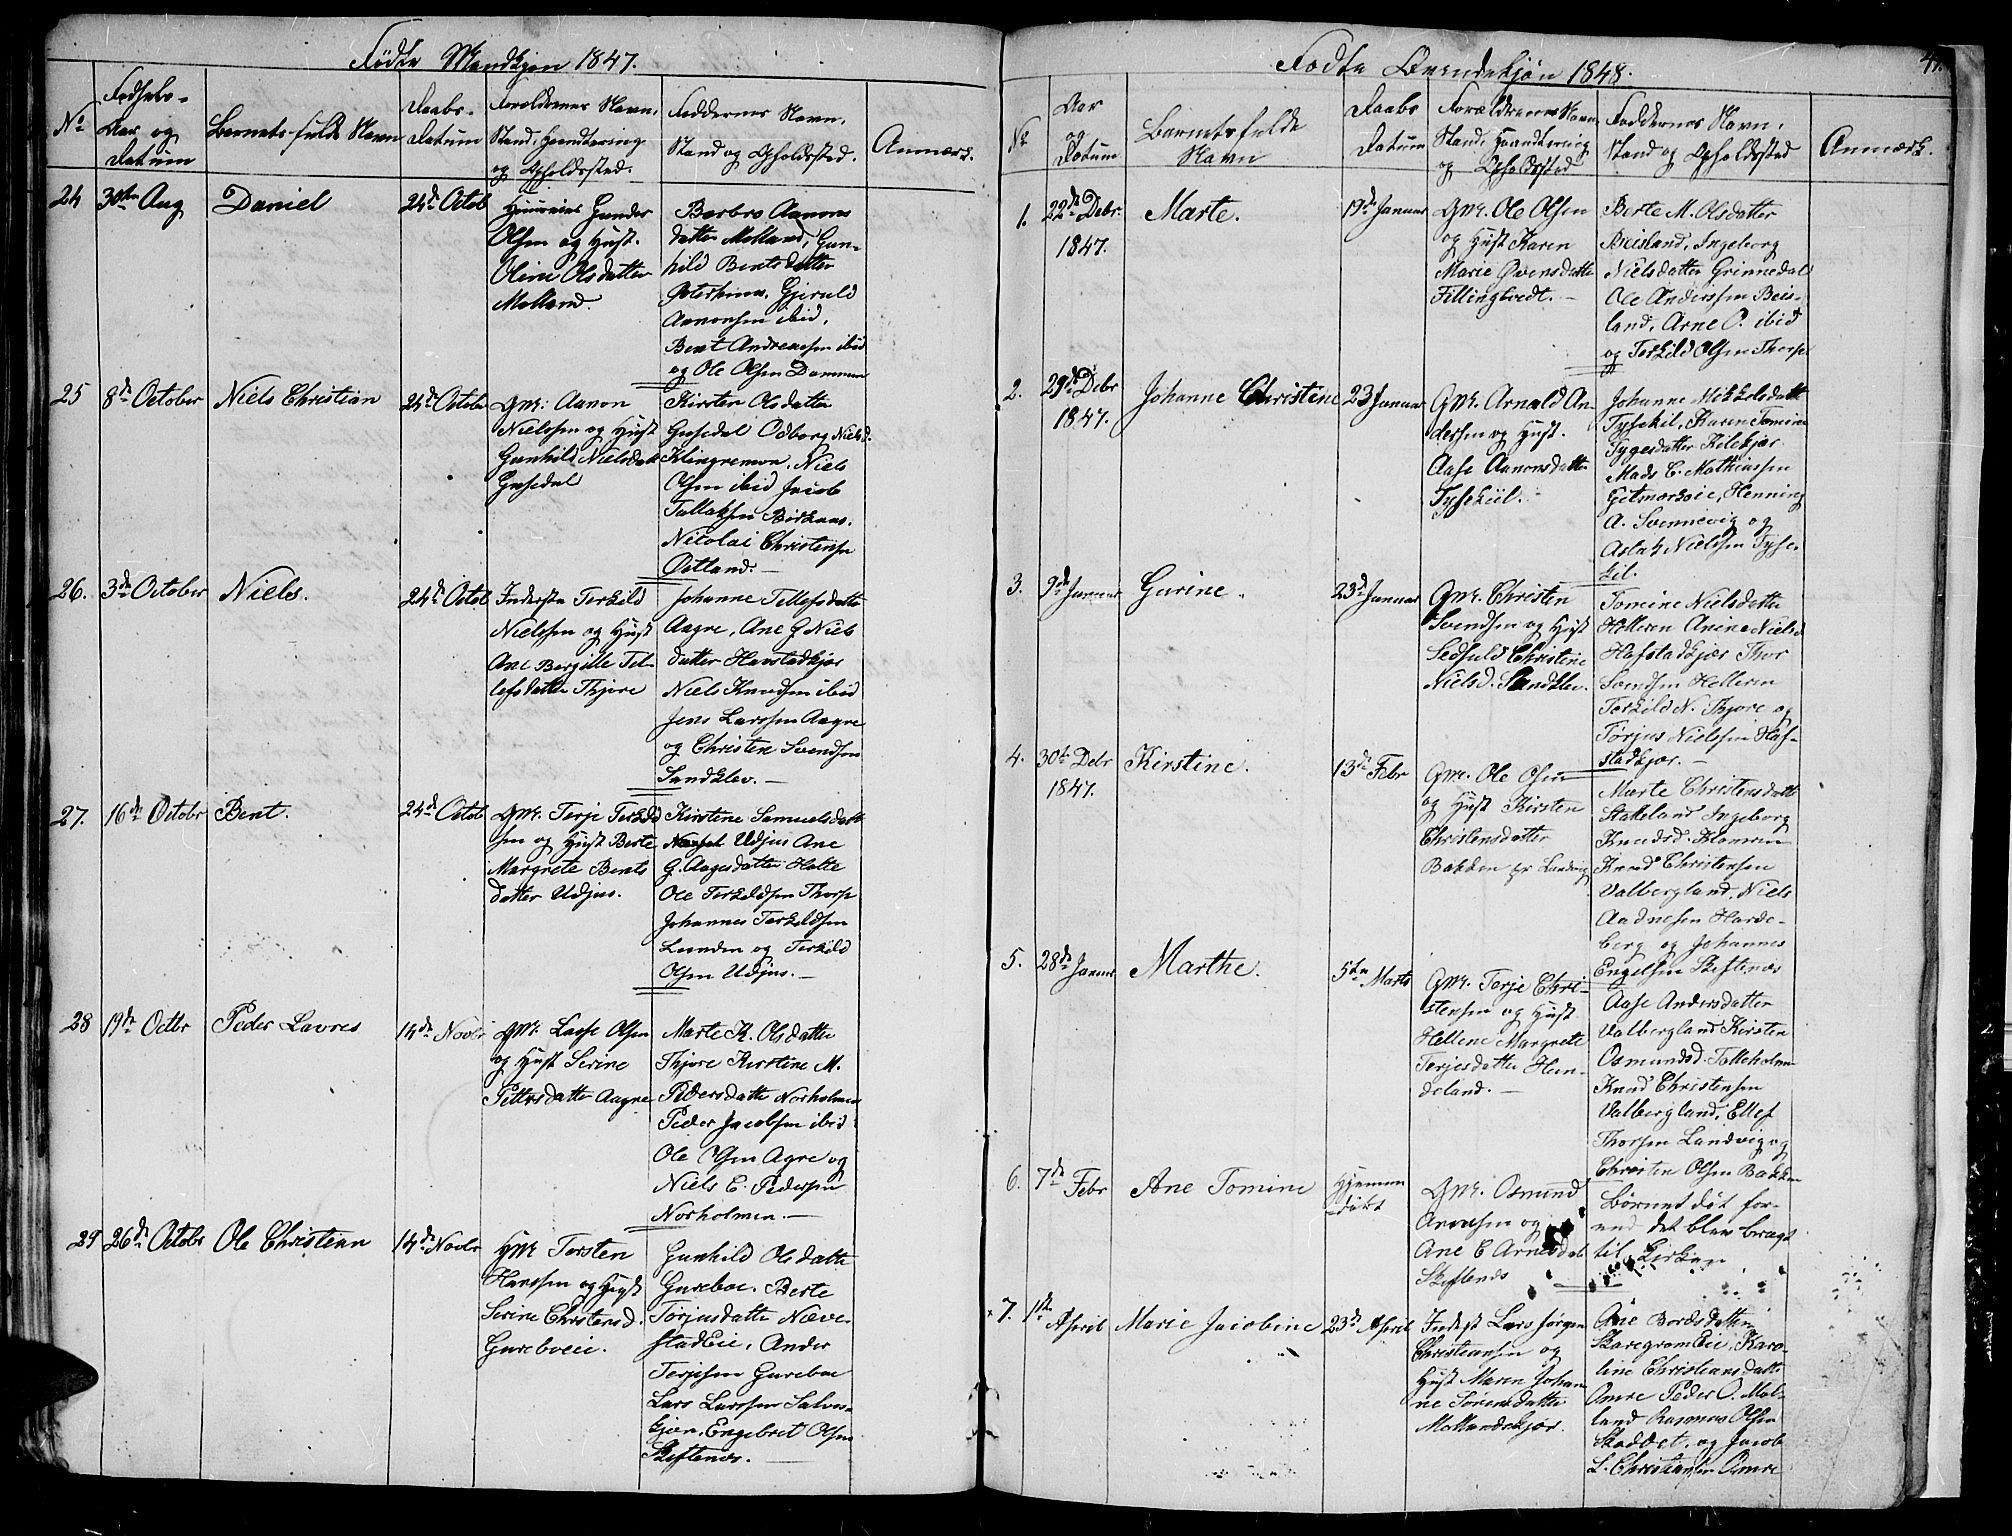 Fødte Mandkjøn 1847.
No
Fødsels-
Aar og
Datum
Barnets fulde Navn
Daabs-
Datum
Forældrenes Navn,
Stand, Haandtering
og Opholdssted.
Faddernes Navn,
Stand og Opholdssted.
Anmærk.
24
30te Aug
Daniel
24de Octob
Huusmand Gunder
Olsen og Hust.
Oline Olsdatter
Molland.
Barbro Aanons
datter Molland, Gun-
hild Bentsdatter
Østerhuus, Gjeruld
Aanonsen ibid,
Bent Andreassen ibid
og Ole Olsen Dammen
25
8de October
Niels Christian
24de Octobe
Gmr. Aanon
Nielssen og Hust
Gunhild Nielsdatt
Gusedal
Kirsten Olsdatter
Gusedal Odborg Nielsd.
Klingremoen, Niels
Olsen ibid Jacob
Tallaksen Birkenes.
Nicolai Christensen
Østland.
26.
3de October
Niels.
24de Octob
Inderste Terkild
Nielssen og Hust
Ane Bergitte Tel-
lefsdatter Thjore
Johanne Tellefsdatter
Aagre, Ane G Niels
datter Havstadkjær
Niels Knudsen ibid
Jens Larssen Aagre
og Christen Svendsen
Sandklev.
27.
16de Octobr
Bent.
24de Octob
Gmr. Terje Terkild
sen og Hust Berte
Margrete Bents
datter Udjus.
Kirstine Samuelsdatt
Udjus Ane
G. Aagesdatter Holte
Ole Terkildsen Thorp
Johannes Terkildsen
Lunden og Terkild
Olsen Udjus.
28
19de Octbr
Peder Lavres
14de Novbr
Gmr. Lasse Olsen
og Hust Serine
Pettersdatter Aagre
Marte K. Olsdatter
Thjore Kirstine M.
Pedersdatte Norholmen
Peder Jacobsen ibid
Ole Olsen Agre og
Niels C. Pedersen
Norholmen.
29
26de Octobr
Ole Christian
14de Novbr
Hmd Torsten
Hanssen og Hust
Serine Christensd.
Gurebo eie.
Gunhild Olsdatte
Gurebo. Berte
Torjusdatte Næve-
stadeie, Ander
Terjesen Gurebo
Lars Larssen Salves-
kjær, Engebret Olsen
Skiftenæs.
Fødte Qvindekjøn 1848.
47.
No
Aar
og
Datum
Barnets fulde
Navn
Daabs
Datum
Forældrenes Navn
Stand, Haandtering
og Opholdssted
Faddernes Navn,
Stand og Opholdssted
Anmærk.
1.
22de Debr.
1847.
Marte.
19de Januar
Gmr. Ole Olsen
og Hust Karen
Marie Ovensdatte
Fillingtvedt.
Berte M. Olsdatter
Beisland, Ingeborg
Nielsdatter Grinnedal
Ole Anderssen Beis-
land, Arne P. ibid
og Terkild Olsen Thorp
2.
29de Debr
1847.
Johanne Christine
23 Januar
Gmr. Arnold An-
dersen og Hust.
Aase Aanonsdatter
Tysekiil.
Johanne Mikkelsdatt
Tysekil, Karen Tomine
Tygesdatter Kilekjær
Mads C. Mathiassen
Gitmarkeie, Henning
A. Svennevig og
Aslak Nielsen Tyse-
kil.
3.
9de Januar
Gurine.
23d Januar
Gmr. Christen
Svendsen og Hust
Sedsuld Christine
Nielsd. Sandklev.
Tomine Nielsdatter
Helleren Anine Nielsd
Hafstadkjær Thor
Svendsen Helleren
Terkild N. Thjore og
Torjus Nielsen Haf-
stadkjær.
4.
30te Debr
1847.
Kirstine.
13de Febr
Gmr. Ole Olsen
og Hust Kirsten
Christensdatter
Bakken pr Landvig
Marte Christensdatt
Stakeland Ingeborg
Knudsd.
Knud Christensen
Valbergland, Niels
Aadnesen Harde-
berg og Johannes
Engelsen Skiftenæs
5.
28de Januar
Marthe.
5te Marts
Gmr. Terje Chri-
stensen og Hust
Hellene Margrete
Terjesdatter Hun-
deland.
Aase Andersdatter
Valbergland Kirsten
Osmundsd. Talleholm
Knud Christensen
Valbergland, Ellef
Thorsen Landvig og
Christen Olsen Bakken
6.
7de Febr
Ane Tomine
Hjemme
døbt
Gmr. Osmund
Arnesen og
Ane C Arnesdat
Skiftenæs
Barnet døt for-
end det blev bragt
til Kirken
7.
1ste April
Marie Jacobine
23de April
Inderst Lars Jørgen
Christiansen og
Hust Maren Johan
ne Sørensdatter
Mollandskjær.
Ane Bordsdatter
Skaregrømeie, Karo-
line Christiansdatte
Omre Peder O. Mol-
land Rasmus Olsen
Staddet, og Jacob
L. Christiansen Omre